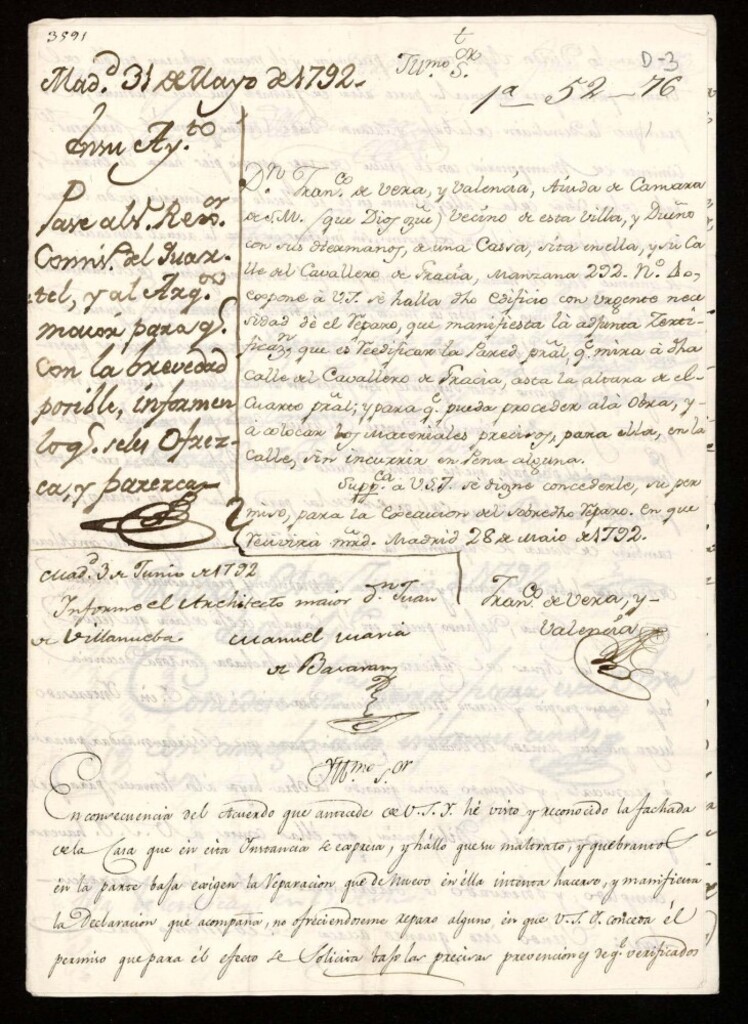 3591
D-3
t
Yllmo. Sor.
1a - 52 - 76
Madd. 31 de Mayo de 1792.
En su Ayto.
Pase al Sr. Rexor.
Comiso. del Quar-
tel, y al Arqto.
maior para q.e
con la brevedad
posible, informen
lo q.e se les Ofrez-
ca, y parezca
Dn. Franco. de Vera, y Valencia, Aiuda de Camara
de S.M. (que Dios gue) vecino de esta villa, y Dueño
con sus Hermanos, de una Cassa, sita en ella, y su Ca-
lle del Cavallero de Gracia, Manzana 292. No. 40,
expone à V.I. se halla dho edificio con urgente nece-
sidad de el Reparo, que manifiesta là adjunta Zerti-
ficazn, que es Reedificar la Pared pral, q.e mira à dha
calle del Cavallero de Gracia, asta la altura de el
Quarto pral; y para q.e pueda proceder alà Obra, y
à colocar los Materiales precisos, para ella, en la
calle, sin incurrir en Pena alguna.
Suppca. à V.S.I. se digne concederle, su per-
miso, para la Execucion del sobredho Reparo. En que
Recivirà mrd. Madrid 28 de Maio de 1792.
Franco. de Vera, y
Valencia
Madd. 3 de Junio de 1792
Informe el Architecto maior Dn. Juan
de Villanueba.
Manuel Maria
de
Yllmo. Sor.
En consecuencia del Acuerdo que antecede de V.S.Y. hé visto y reconocido la fachada
de la Casa que en esta Instancia se expresa, y hállo que su maltrato, y quebrantos
en la parte baja exigen la Reparacion que de Nuevo en ella intenta hacerse, y manifiesta
la Declaracion que acompaña, no ofreciendoseme reparo alguno, en que V.S.Y. conceda él
permiso que para él efecto se Solicita bajo las precisas prevenciones de q.e verificados